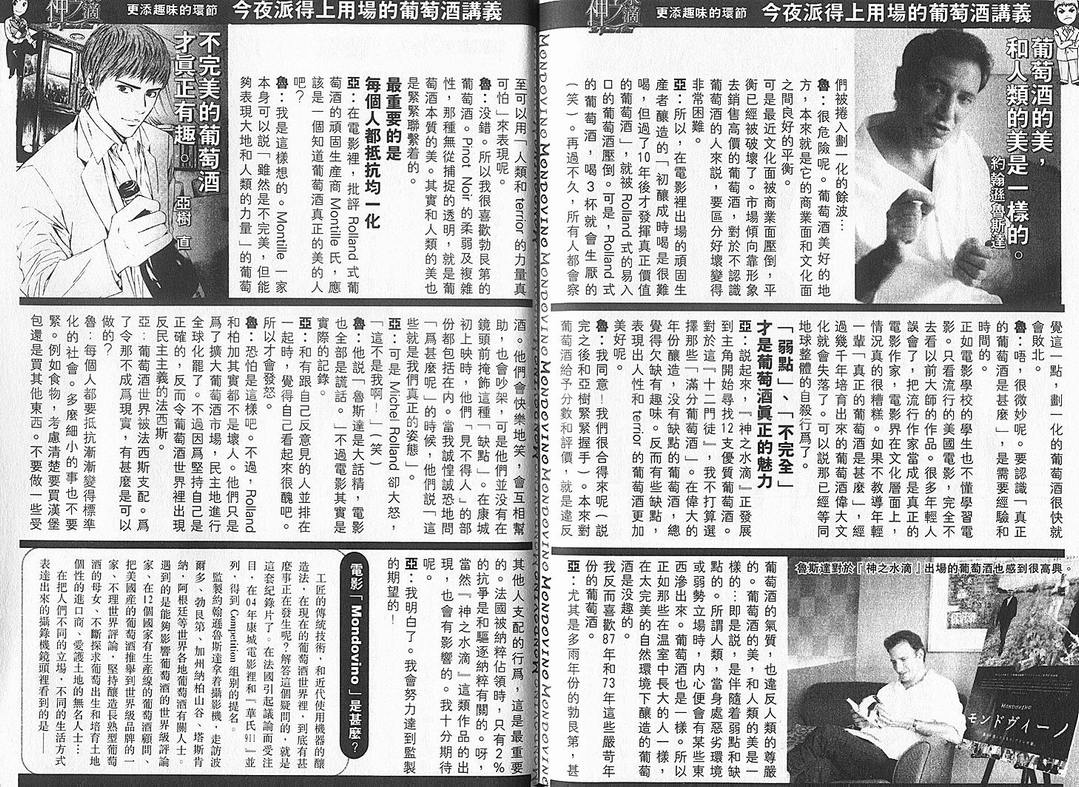 神之滴
更添趣味的環節
今夜派得上用場的葡萄酒講義
葡萄酒的美，
和人類的美是一樣的。
約翰遜魯斯達
們被捲入劃一化的餘波…
魯：很危險呢。葡萄酒美好的地
方，本來就是它的商業面和文化面
之間良好的平衡。
可是最近文化面被商業面壓倒，平
衡已經被破壞了。市場傾向靠形象
去銷售高價的葡萄酒，對於不認識
葡萄酒的人來說，要區分好壞變得
非常困難。
亞：所以，在電影裡出場的頑固生
產者釀造的「初釀成時喝是很難
喝，但過了10年後才發揮真正價值
的葡萄酒」，就被Rolland式的易入
口的葡萄酒壓倒。可是，Rolland式
的葡萄酒，喝3杯就會生厭的
（笑）。再過不久，所有人都會察
覺這一點，劃一化的葡萄酒很快就
會敗北。
魯：唔，很微妙呢。要認識「真正
的葡萄酒是甚麼」，是需要經驗和
時間的。
正如電影學校的學生也不懂學習電
影。只看流行的美國電影，完全不
去看以前大師的作品。很多年輕人
誤會了，把流行作家當成是真正的
電影作家，電影界在文化層面上，
情況真的很糟糕。如果不教導年輕
一輩「真正的葡萄酒是甚麼」，經
過幾千年培育出來的葡萄酒偉大文
化就會失落了。可以說那已經等同
地球整體的自殺行爲了。
「弱點」、「不完全」
才是葡萄酒真正的魅力
亞：說起來，『神之水滴』正發展
到主角開始尋找12支優質葡萄酒。
對於這「十二門徒」，我不打算選
擇那些「滿分葡萄酒」。在偉大的
年份釀造，沒有缺點的葡萄酒，總
覺得欠缺有趣味。反而有些缺點，
表現出人性和terrior的葡萄酒更加
美好呢。
魯：我同意！我們很合得來呢（說
完之後和亞樹緊緊握手）。本來對
葡萄酒給予分數和評價，就是違反
魯斯達對於「神之水滴」出場的葡萄酒也感到很高興。
MONDOVINO
モンドヴィーノ
葡萄酒的氣質，也違反人類的尊嚴
的。葡萄酒的美，和人類的美是一
樣的…即是說，是伴隨着弱點和缺
點的。所謂人類，當身處惡劣環境
或弱勢立場時，內心便會有某些東
西滲出來。葡萄酒也是一樣。所以
正如那些在溫室中長大的人一樣，
在太完美的自然環境下釀造的葡萄
酒是沒趣的。
我反而喜歡87年和73年這些嚴苛年
份的葡萄酒。
亞：尤其是多雨年份的勃艮第，甚
MONDOVINO MONDOVINO MONDOVINO MONDOVINO
神之滴
更添趣味的環節
今夜派得上用場的葡萄酒講義
至可以用「人類和terrior的力量真
可怕」來表現呢。
魯：沒錯。所以我很喜歡勃艮第的
葡萄酒。Pinot Noir的柔弱及複雜
性，那種無從捕捉的透明，就是葡
萄酒本質的美。其實和人類的美也
是緊緊聯繫着的。
最重要的是
每個人都抵抗均一化
亞：在電影裡，批評Rolland式葡
萄酒的頑固生産商Montille氏，應
該是一個知道葡萄酒真正的美的人
吧？
魯：我是這樣想的。Montille一家
本身可以說「雖然是不完美，但能
夠表現大地和人類的力量」的葡萄
不完美的葡萄酒
才真正有趣。
亞樹 直
酒。他們會快樂地笑，會互相幫
助，也會吵架，可是他們並沒有在
鏡頭前掩飾這種「缺點」。在康城
上映時，他們「見不得人」的部
份都包括在內。當我誠惶誠恐地問
「爲甚麼呢」的時候，他們說「這
些就是我們真正的姿態」。
亞：可是Michel Rolland卻大怒，
「這不是我啊！」（笑）
魯：他說「魯斯達是大話精，電影
也全部是謊話。」不過電影其實是
實際的記錄。
亞：和有跟自己反意見的人並排在
一起時，覺得自己看起來很醜吧。
所以才會發怒。
魯：恐怕是這樣吧。不過，Rolland
和柏加其實都不是壞人。他們只是
爲了擴大葡萄酒市場，民主地進行
全球化罷了。不過因爲堅持自己是
正確的，反而令葡萄酒世界裡出現
反民主主義的法西斯。
亞：葡萄酒世界被法西斯支配。爲
了令那不成爲現實，有甚麼是可以
做的？
魯：每個人都要抵抗漸漸變得標準
化的社會。多麼細小的事也不要
緊。例如食物，考慮清楚要買漢堡
包還是買其他東西。不要做一些受
其他人支配的行爲，這是最重要
的。法國被納粹佔領時，只有2%
的抗爭是和驅逐納粹有關的。呀，
當然『神之水滴』這類作品的出
現，也會有影響的。我十分期待
呢。
亞：我明白了。我會努力達到監製
的期望的！
電影「Mondovino」是甚麼？
工匠的傳統技術，和近代使用機器的釀
造法，在現在的葡萄酒世界裡，到底有甚
麼事正在發生呢？解答這個疑問的，就是
這套紀錄片了。在法國引起議論而受注
目，在04年康城電影裡和「華氏911」並
列，得到Competition組別的提名。
監製約翰遜魯斯達拿着攝影機，走訪波
爾多、勃艮第、加州納柏山谷、塔斯肯
納、阿根廷等世界各地葡萄酒有關人士。
遇到的是能夠影響葡萄酒的世界級評論
家、在12個國家有生産線的葡萄酒顧問、
把美國産的葡萄酒推舉到世界級品牌的一
家、不理世界評論，堅持釀造長熟型葡萄
酒的母女、不斷探求葡萄出生和培育土地
個性的進口商、愛護土地的無名人士…
在把人們不同的立場，不同的生活方式
表達出來的攝錄機鏡頭裡看到的是——